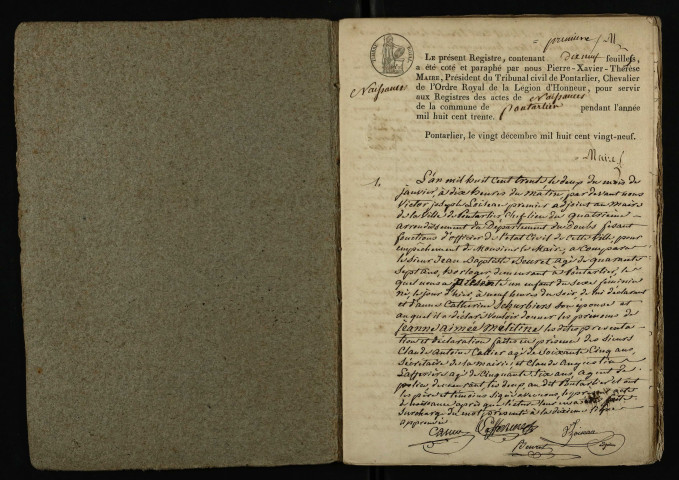 = première / M
Le présent Registre, contenant dix neuf feuillets,
a été coté et paraphé par nous Pierre-Xavier-Thérèse
Maire, Président du Tribunal civil de Pontarlier, Chevalier
de l'Ordre Royal de la Légion d'Honneur, pour servir
Naissances
aux Registres des actes de Naissances
de la commune de Pontarlier pendant l'année
mil huit cent trente.
Pontarlier, le vingt décembre mil huit cent vingt-neuf.
Maire
1. L'an mil huit cent trente le deux du mois de
janvier, à dix heures du matin, par devant nous
Victor Joseph Loiseau premier adjoint au maire
de la Ville de Pontarlier, Chef lieu du quatrième
arrondissement du Département du Doubs faisant
fonctions d'officier de l'état Civil de cette Ville, pour
empêchement de Monsieur le Maire, a comparu
le Sieur Jean Baptiste Bouret agé de quarante
sept ans, horloger demeurant à Pontarlier, le
quel nous a présenté un enfant du sexe féminin
né, le jour d'hier, à neuf heures du soir de lui déclarant
et d'anne Catherine son épouse et
auquel il a déclaré vouloir donner les prénoms de
jeanne aimée mélitine les dites présenta
tion et déclaration faites en présence des Sieurs
Claude Antoine agé de soixante cinq ans,
Sécrétaire de la mairie et Claude
agé de Cinquante six ans, agent de
police, demeurant les deux au dit Pontarlier et ont
les père et témoins signé avec nous, le présent acte
de naissance après que lecture leur en a été fait
Surcharge du mot, présenté à la dixième ligne
approuvée